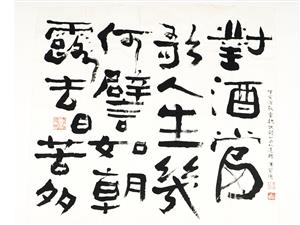 對酒當
歌人生幾
何譬如朝
露去日苦多